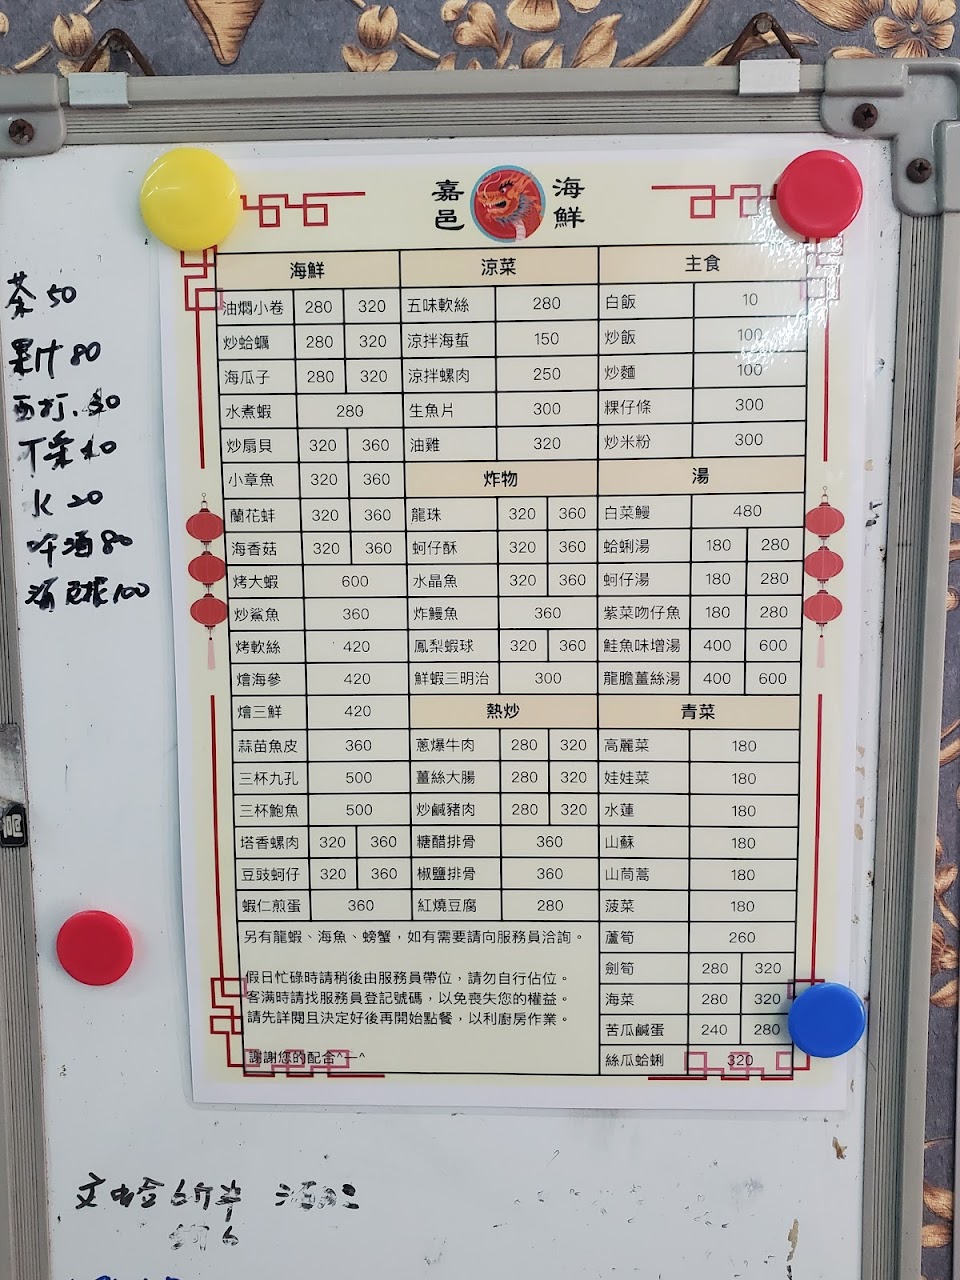 嘉邑 海鮮
海鮮
油燜小卷 280 320
炒蛤蠣 280 320
海瓜子 280 320
水煮蝦 280
炒扇貝 320 360
小章魚 320 360
蘭花蚌 320 360
海香菇 320 360
烤大蝦 600
炒鯊魚 360
烤軟絲 420
燴海參 420
燴三鮮 420
蒜苗魚皮 360
三杯九孔 500
三杯鮑魚 500
塔香螺肉 320 360
豆豉蚵仔 320 360
蝦仁煎蛋 360
涼菜
五味軟絲 280
涼拌海蜇 150
涼拌螺肉 250
生魚片 300
油雞 320
炸物
龍珠 320 360
蚵仔酥 320 360
水晶魚 320 360
炸鰻魚 360
鳳梨蝦球 320 360
鮮蝦三明治 300
熱炒
蔥爆牛肉 280 320
薑絲大腸 280 320
炒鹹豬肉 280 320
糖醋排骨 360
椒鹽排骨 360
紅燒豆腐 280
主食
白飯 10
炒飯 100
炒麵 100
粿仔條 300
炒米粉 300
湯
白菜鰻 480
蛤蜊湯 180 280
蚵仔湯 180 280
紫菜吻仔魚 180 280
鮭魚味增湯 400 600
龍膽薑絲湯 400 600
青菜
高麗菜 180
娃娃菜 180
水蓮 180
山蘇 180
山茼蒿 180
菠菜 180
蘆筍 260
劍筍 280 320
海菜 280 320
苦瓜鹹蛋 240 280
絲瓜蛤蜊 320
另有龍蝦、海魚、螃蟹，如有需要請向服務員洽詢。
假日忙碌時請稍後由服務員帶位，請勿自行佔位。
客滿時請找服務員登記號碼，以免喪失您的權益。
請先詳閱且決定好後再開始點餐，以利廚房作業。
謝謝您的配合^—^
茶 50
果汁 80
水 20
啤酒 80
100